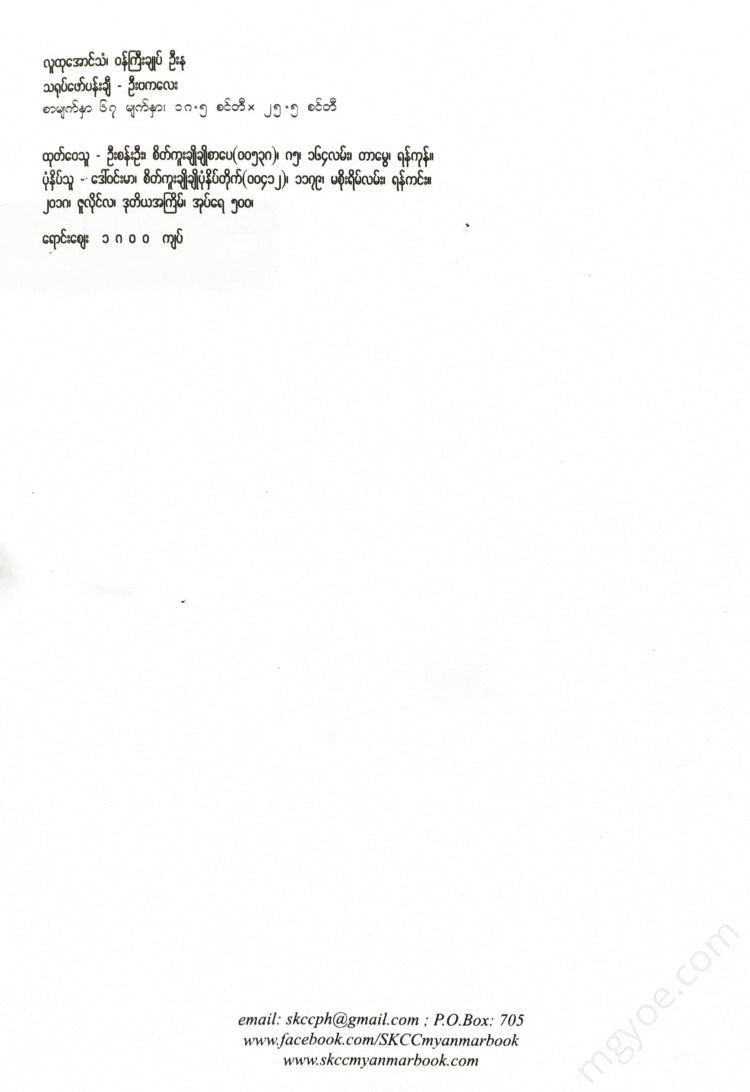 လူထုအောင်သံ၊ ဝန်ကြီးချုပ် ဦးနု
သရုပ်ဖော်ပန်းချီ - ဦးဗကလေး
စာမျက်နှာ ၆၇ မျက်နှာ၊ ၁၈.၅ စင်တီ× ၂၅.၅ စင်တီ
ထုတ်ဝေသူ - ဦးစန်းဦး၊ စိတ်ကူးချိုချိုစာပေ(၀၀၅၃၈)၊ ၈၅၊ ၁၆၄လမ်း၊ တာမွေ၊ ရန်ကုန်။
ပုံနှိပ်သူ - ဒေါ်ဝင်းမာ၊ စိတ်ကူးချိုချိုပုံနှိပ်တိုက်(၀၀၄၁၂)၊ ၁၁၇၉၊ မစိုးရိမ်လမ်း၊ ရန်ကင်း။
၂၀၁၈၊ ဇူလိုင်လ၊ ဒုတိယအကြိမ်၊ အုပ်ရေ ၅၀၀၊
ရောင်းဈေး ၁ ၈ ၀ ၀ ကျပ်
email: skccph@gmail.com ; P.O.Box: 705
www.facebook.com/SKCCmyanmarbook
www.skccmyanmarbook.com
mgyoe.com